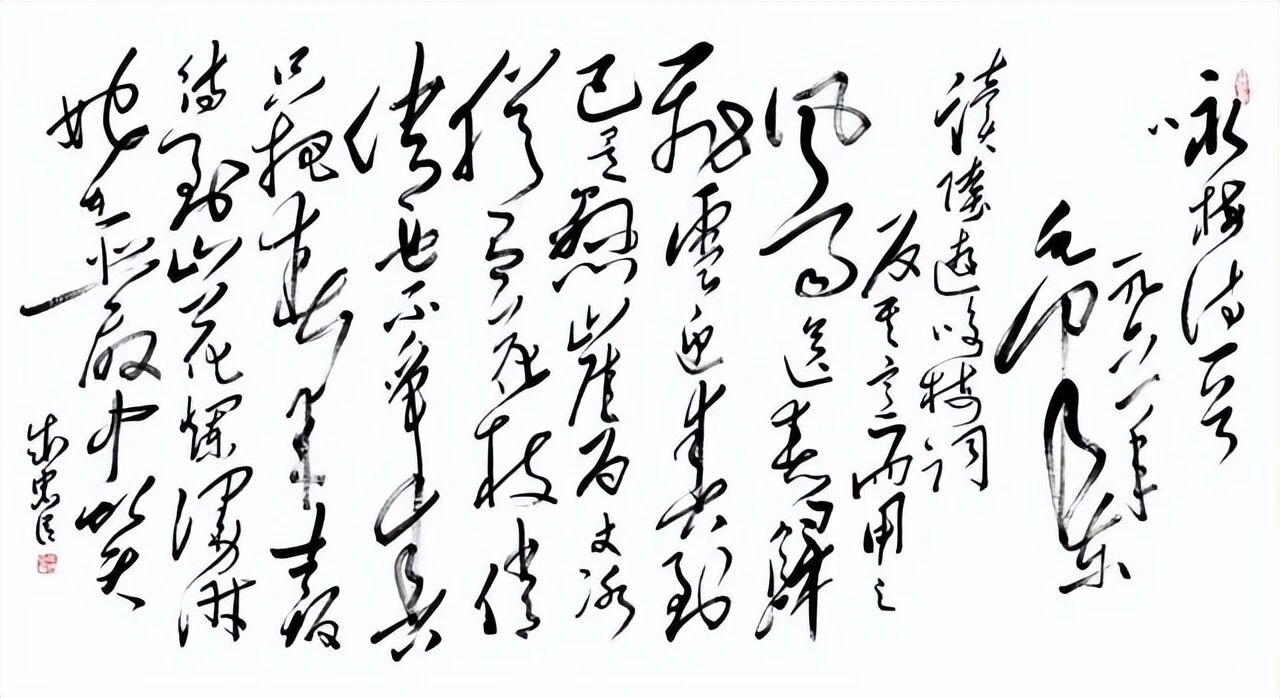 咏梅诗一首
一九六一年
毛泽东
讀陸遊咏梅词
反其意而用之
风雨送春歸
飛雪迎春到
已是懸崖百丈冰
猶有花枝俏
俏也不争春
只把春来报
待到山花爛漫时
她在丛中笑